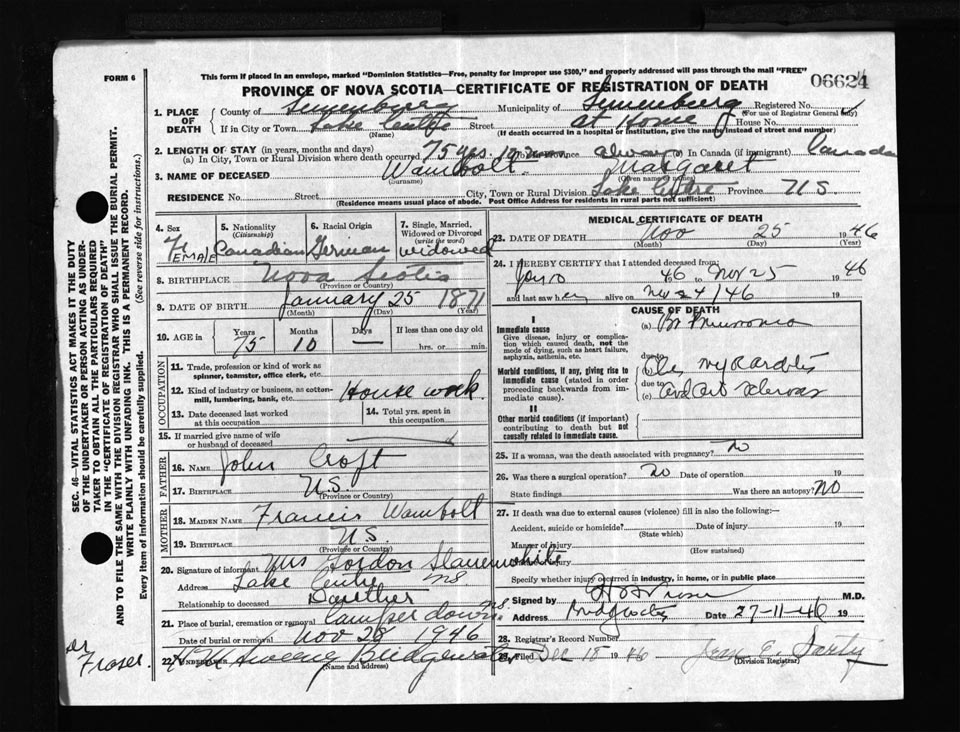 FORM 6
This form if placed in an envelope, marked "Dominion Statistics—Free, penalty for improper use $300," and properly addressed will pass through the mail "FREE"
PROVINCE OF NOVA SCOTIA—CERTIFICATE OF REGISTRATION OF DEATH
06624
1. PLACE OF DEATH
County of Lunenburg Municipality of Lunenburg Registered No.
(For use of Registrar General only)
If in City or Town Lake Centre Street at Home House No.
(Name) (If death occurred in a hospital or institution, give the name instead of street and number)
2. LENGTH OF STAY (in years, months and days)
(a) In City, Town or Rural Division where death occurred 75 yrs. 10 mos Province always In Canada (if immigrant) Canada
3. NAME OF DECEASED Wambolt Margaret
(Surname) (Given name or names)
RESIDENCE No. Street City, Town or Rural Division Lake Centre Province N.S.
(Residence means usual place of abode. Post Office Address for residents in rural parts not sufficient)
4. Sex Female
5. Nationality (Citizenship) Canadian
6. Racial Origin German
7. Single, Married, Widowed or Divorced (write the word) widowed
8. BIRTHPLACE Nova Scotia
(Province or Country)
9. DATE OF BIRTH January 25 1871
(Month) (Day) (Year)
10. AGE in Years 75 Months 10 Days — If less than one day old hrs. or min.
OCCUPATION
11. Trade, profession or kind of work as spinner, teamster, office clerk, etc.
12. Kind of industry or business, as cotton-mill, lumbering, bank, etc. House work
13. Date deceased last worked at this occupation
14. Total yrs. spent in this occupation
15. If married give name of wife or husband of deceased
FATHER
16. NAME John Croft
17. BIRTHPLACE N.S.
(Province or Country)
MOTHER
18. MAIDEN NAME Francis Wambolt
19. BIRTHPLACE N.S.
(Province or Country)
20. Signature of informant Mrs Gordon Slauenwhite
Address Lake Centre NS
Relationship to deceased Daughter
21. Place of burial, cremation or removal Camperdown NS
Date of burial or removal Nov 28 1946
22. UNDERTAKER Sweeny Bridgewater
(Name and address)
MEDICAL CERTIFICATE OF DEATH
23. DATE OF DEATH Nov 25 1946
(Month) (Day) (Year)
24. I HEREBY CERTIFY that I attended deceased from:
46 to Nov 25 1946
and last saw her alive on Nov 24/46 19
CAUSE OF DEATH
I
Immediate cause
Give disease, injury or complication which caused death, not the mode of dying, such as heart failure, asphyxia, asthenia, etc.
(a) Br Pneumonia
Morbid conditions, if any, giving rise to immediate cause (stated in order proceeding backwards from immediate cause).
due to Myocarditis
due to
(c)
II
Other morbid conditions (if important) contributing to death but not causally related to immediate cause.
25. If a woman, was the death associated with pregnancy? No
26. Was there a surgical operation? No Date of operation 19
State findings Was there an autopsy? NO
27. If death was due to external causes (violence) fill in also the following:—
Accident, suicide or homicide? Date of injury 19
(State which)
Manner of injury
(How sustained)
Nature of injury
Specify whether injury occurred in industry, in home, or in public place
Signed by M.D.
Address Bridgewater NS Date 27-11-46 19
28. Registrar's Record Number
29. Filed Dec 18 1946 Jean E.
(Division Registrar)
Fraser.
SEC. 46—VITAL STATISTICS ACT MAKES IT THE DUTY
OF THE UNDERTAKER OR PERSON ACTING AS UNDER-
TAKER TO OBTAIN ALL THE PARTICULARS REQUIRED
IN THE "CERTIFICATE OF REGISTRATION OF DEATH"
AND TO FILE THE SAME WITH THE DIVISION REGISTRAR WHO SHALL ISSUE THE BURIAL PERMIT.
WRITE PLAINLY WITH UNFADING INK. THIS IS A PERMANENT RECORD.
Every item of information should be carefully supplied. (See reverse side for instructions.)